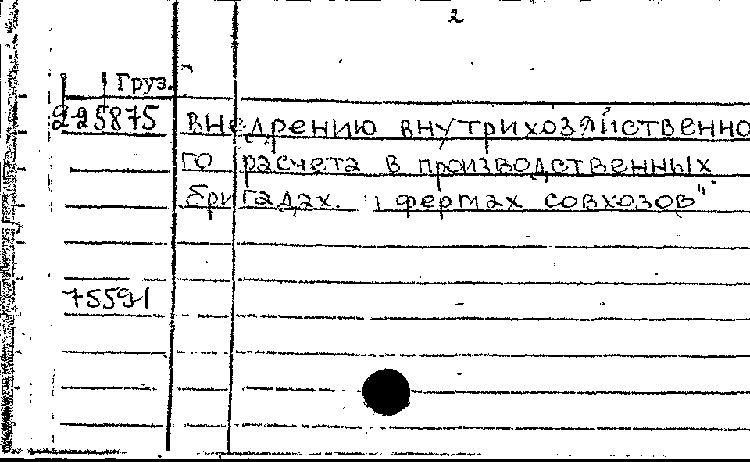 2
Груз.
225875 внедрению внутрихозяйственно
го расчета в производственных
бригадах. и фермах совхозов"
75591